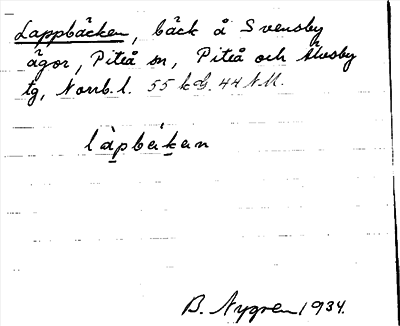 Lappbäcken, bäck å Svensby
ägor, Piteå sn, Piteå och Älvsby
tg, Norrb. l. 55 k G. 44 N M.
làpbèkän
B. Nygren 1934.